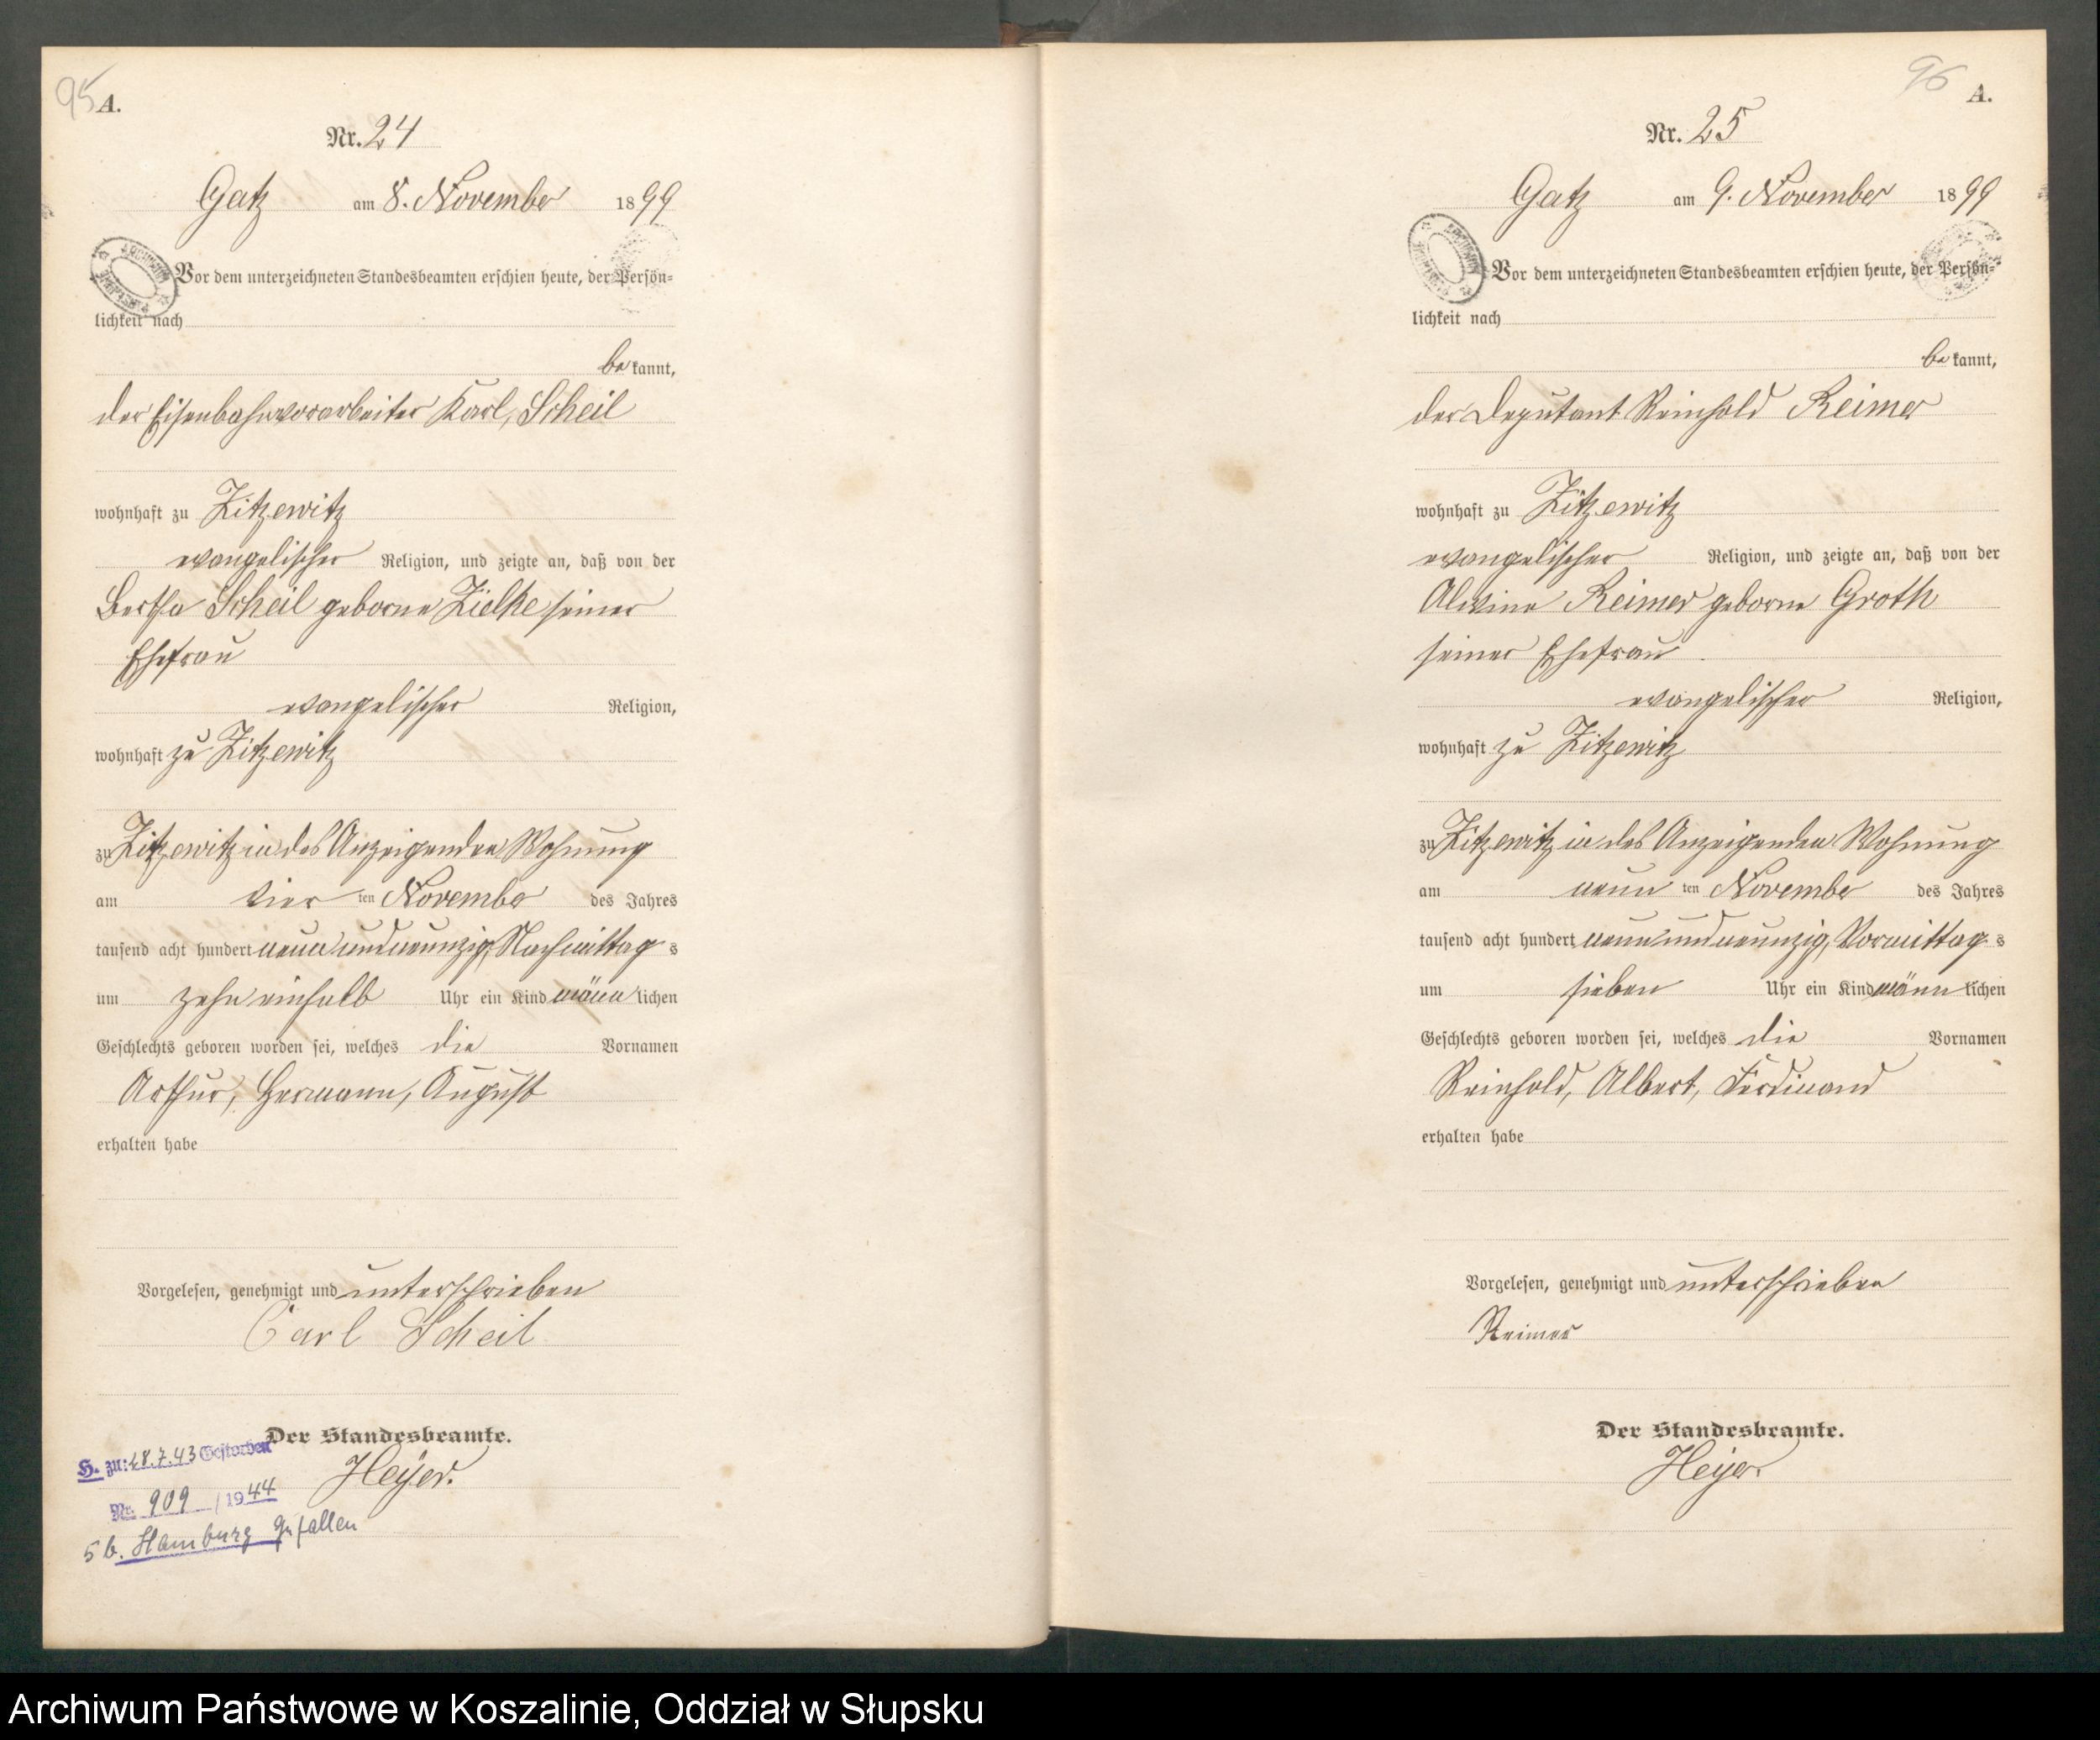 95 A.
Nr. 24
Gatz am 8. November 1899
Vor dem unterzeichneten Standesbeamten erschien heute, der Persön-
lichkeit nach
be kannt,
der Eisenbahnvorarbeiter Karl, Scheil
wohnhaft zu Zitzewitz
evangelischer Religion, und zeigte an, daß von der
Bertha Scheil geborne Zielke seiner
Ehefrau
evangelischer Religion,
wohnhaft zu Zitzewitz
zu Zitzewitz in des Anzeigenden Wohnung
am vier ten November des Jahres
tausend acht hundert neunundneunzig, Nachmittag s
um zehn einhalb Uhr ein Kind männ lichen
Geschlechts geboren worden sei, welches die Vornamen
Arthur, Hermann, August
erhalten habe
Vorgelesen, genehmigt und unterschrieben
Carl Scheil
Der Standesbeamte.
Heyer.
H. zu: 28.7.43 Gestorben
Nr. 909 / 1944
5b. Hamburg gefallen
96 A.
Nr. 25
Gatz am 9. November 1899
Vor dem unterzeichneten Standesbeamten erschien heute, der Persön-
lichkeit nach
be kannt,
der Deputant Reinhold Reimer
wohnhaft zu Zitzewitz
evangelischer Religion, und zeigte an, daß von der
Alwine Reimer geborne Groth
seiner Ehefrau
evangelischer Religion,
wohnhaft zu Zitzewitz
zu Zitzewitz in des Anzeigenden Wohnung
am neun ten November des Jahres
tausend acht hundert neunundneunzig, Vormittag s
um sieben Uhr ein Kind männ lichen
Geschlechts geboren worden sei, welches die Vornamen
Reinhold, Albert, Ferdinand
erhalten habe
Vorgelesen, genehmigt und unterschrieben
Reimer
Der Standesbeamte.
Heyer.
Archiwum Państwowe w Koszalinie, Oddział w Słupsku